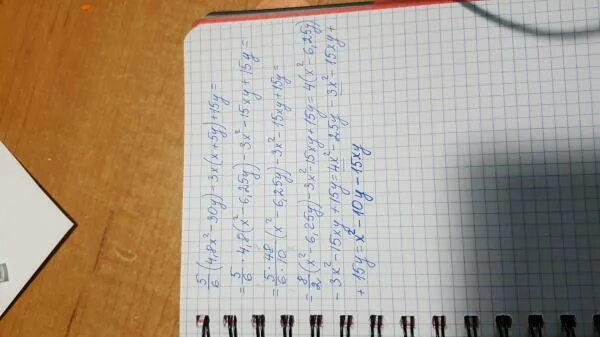 5/6(4,8x²-30y)-3x(x+5y)+15y=
=5/6·4,8(x²-6,25y)-3x²-15xy+15y=
=5·48/6·10(x²-6,25y)-3x²-15xy+15y=
=8/2(x²-6,25y)-3x²-15xy+15y=4(x²-6,25y)
-3x²-15xy+15y=4x²-25y-3x²-15xy+
+15y=x²-10y-15xy